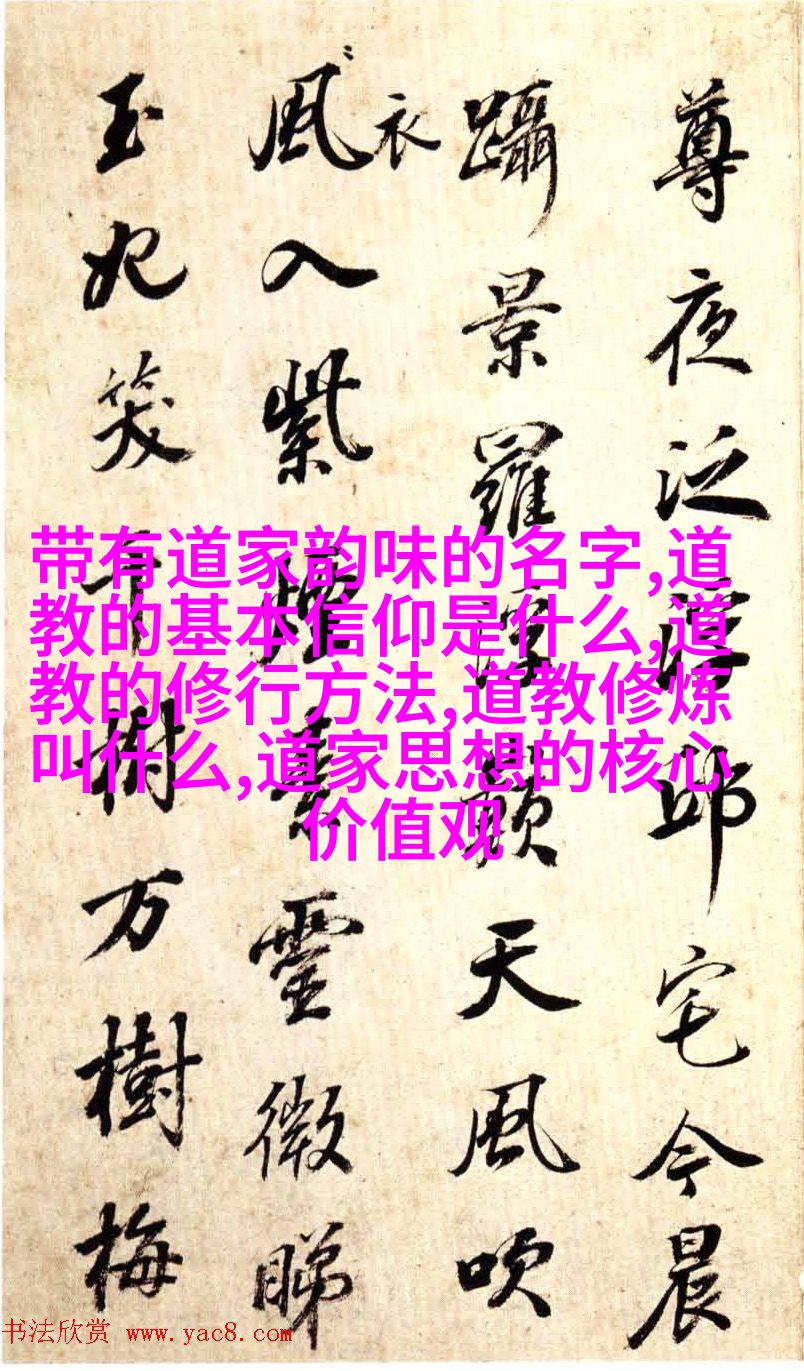 尊夜泛浮邱宅今晨
躡景羅浮巔天風吹
衣
風入紫煙素靈微睇
玉妃笑千樹万樹梅
带有道家韵味的名字,道
教的基本信仰是什么,道
教的修行方法,道教修炼
叫什么,道家思想的核心
价值观
书法欣赏 www.yac8.com